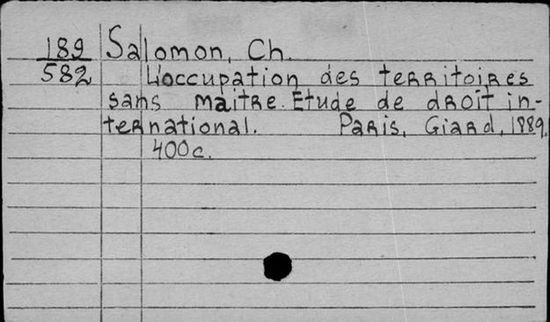 189 Salomon, Ch.
582 L'occupation des territoires
sans maitre. Etude de droit in-
ternational. Paris, Giard, 1889.
400c.